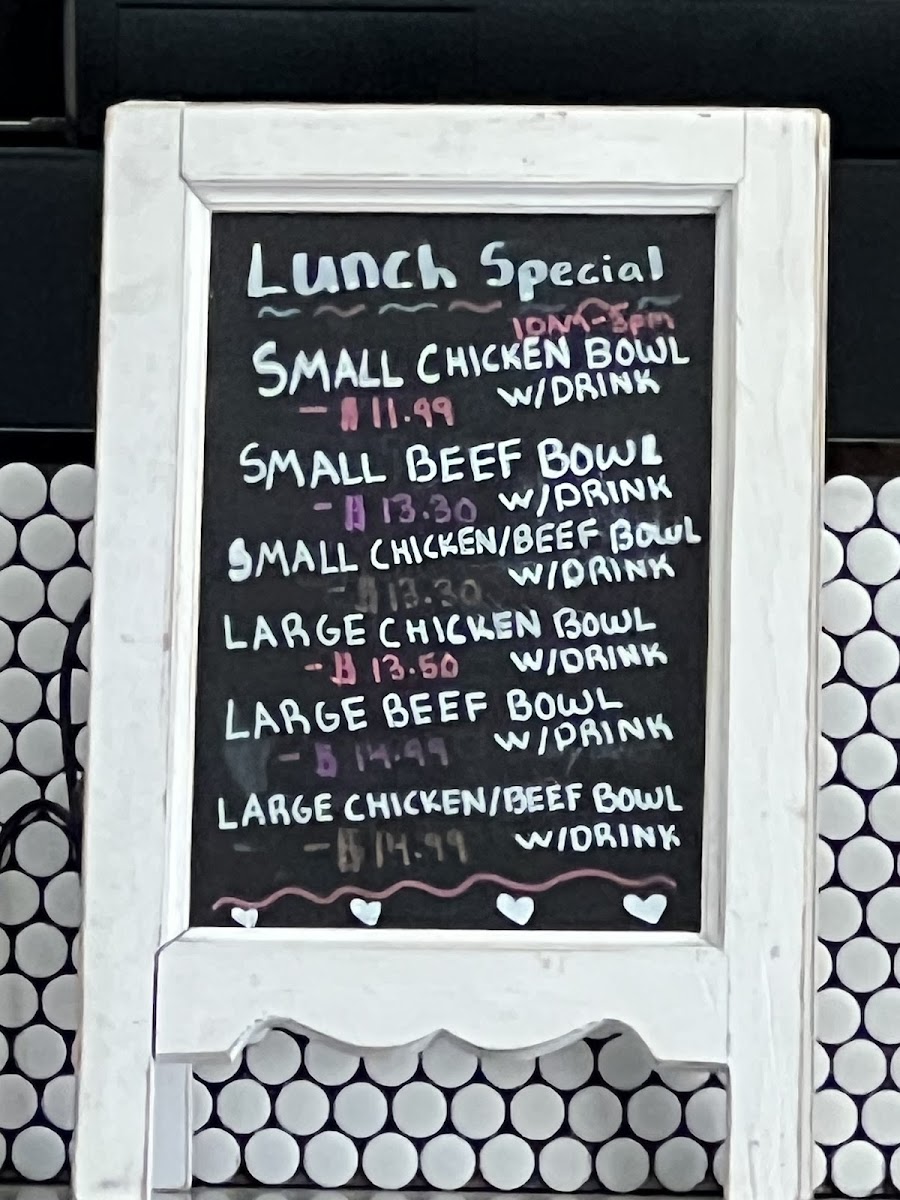 Lunch Special
10AM-3pm
SMALL CHICKEN BOWL
W/DRINK
- $11.99
SMALL BEEF BOWL
W/DRINK
- $13.30
SMALL CHICKEN/BEEF BOWL
W/DRINK
- $13.30
LARGE CHICKEN BOWL
W/DRINK
- $13.50
LARGE BEEF BOWL
W/DRINK
- $14.99
LARGE CHICKEN/BEEF BOWL
W/DRINK
- - $14.99